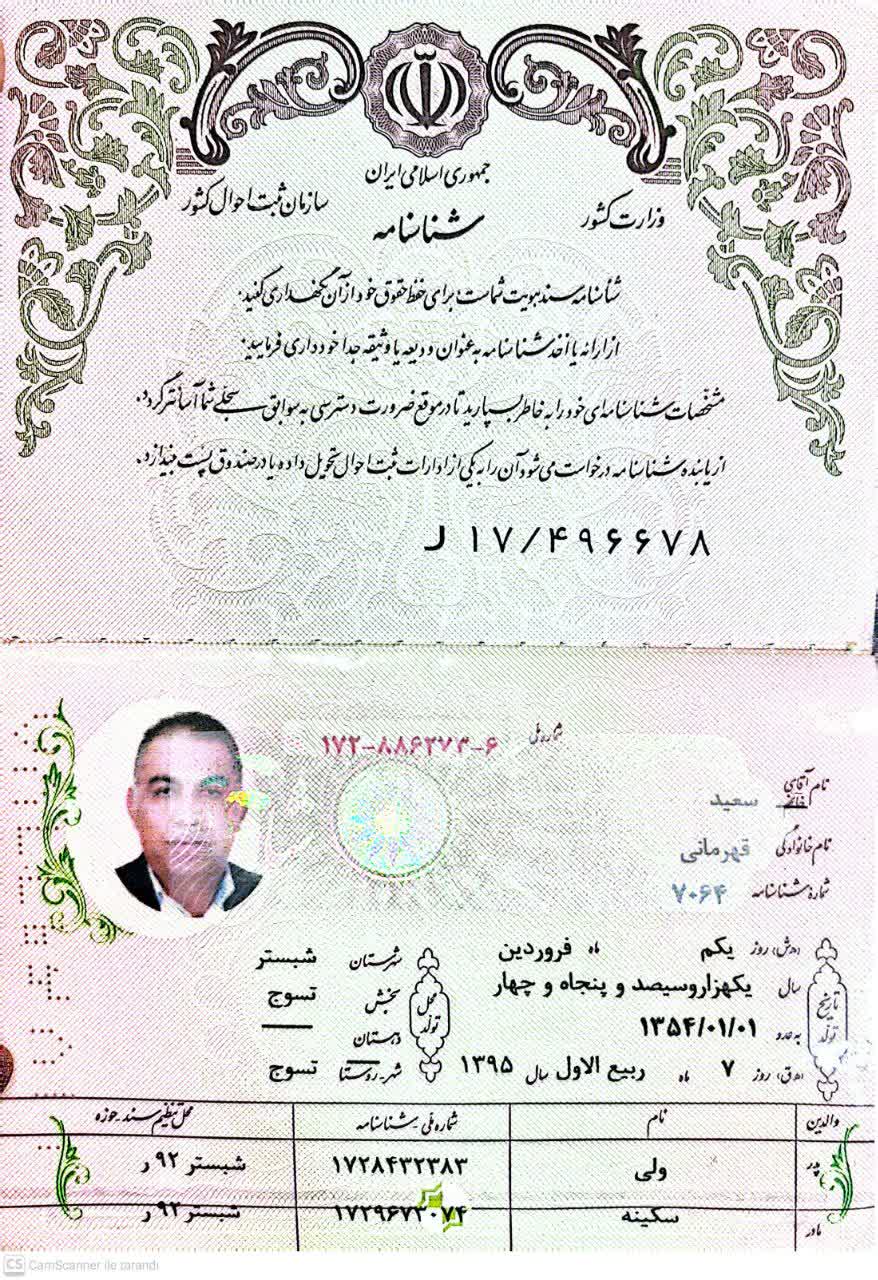 جمهوری اسلامی ایران
وزارت کشور
سازمان ثبت احوال کشور
شناسنامه
شناسنامه سند هویت شماست؛ برای حفظ حقوق خود از آن نگهداری کنید.
از ارائه یا اخذ شناسنامه به عنوان ودیعه یا وثیقه جدا خودداری فرمایید.
مشخصات شناسنامه‌ای خود را به خاطر بسپارید تا در موقع ضرورت دسترسی به سوابق سجلی شما آسانتر گردد.
از یابنده شناسنامه درخواست می‌شود آن را به یکی از ادارات ثبت احوال تحویل داده یا در صندوق پست بیندازد.
ل ۱۷/۴۹۶۶۷۸
شماره ملی ۱۷۲-۸۸۶۲۷۳-۶
نام آقای خانم سعید
نام خانوادگی قهرمانی
شماره شناسنامه ۷۰۶۴
تاریخ تولد
(ه.ش) روز یکم ماه فروردین
سال یکهزاروسیصد و پنجاه و چهار
به عدد ۱۳۵۴/۰۱/۰۱
(ه.ق) روز ۷ ماه ربیع الاول سال ۱۳۹۵
محل تولد
شهرستان شبستر
بخش تسوج
دهستان —
شهر-روستا تسوج
والدین نام شماره ملی-شناسنامه محل تنظیم سند-حوزه
پدر ولی ۱۷۲۸۴۳۲۳۸۳ شبستر ۹۲ ر
مادر سکینه شبستر ۹۲ ر
CS CamScanner ile tarandı